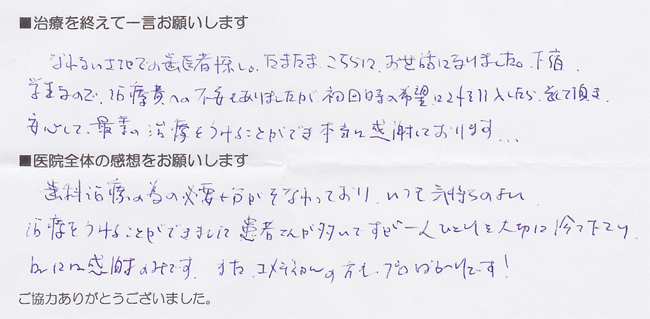 ■治療を終えて一言お願いします
なれない土地での歯医者探し。たまたま、こちらに、お世話になりました。下宿
学生なので、治療費への不安もありましたが初回時の希望に を記入したら、 て頂き
安心して、最 の治療をうけることができ本当に感謝しております...
■医院全体の感想をお願いします
歯科治療の為の必要 分がそなわっており、いつも気持ちのよい
治療をうけることができまして患者さんが多いですが一人ひとりを大切に 下さり
感謝のみです。また、コメディカルの方も、プロばかりです!
ご協力ありがとうございました。